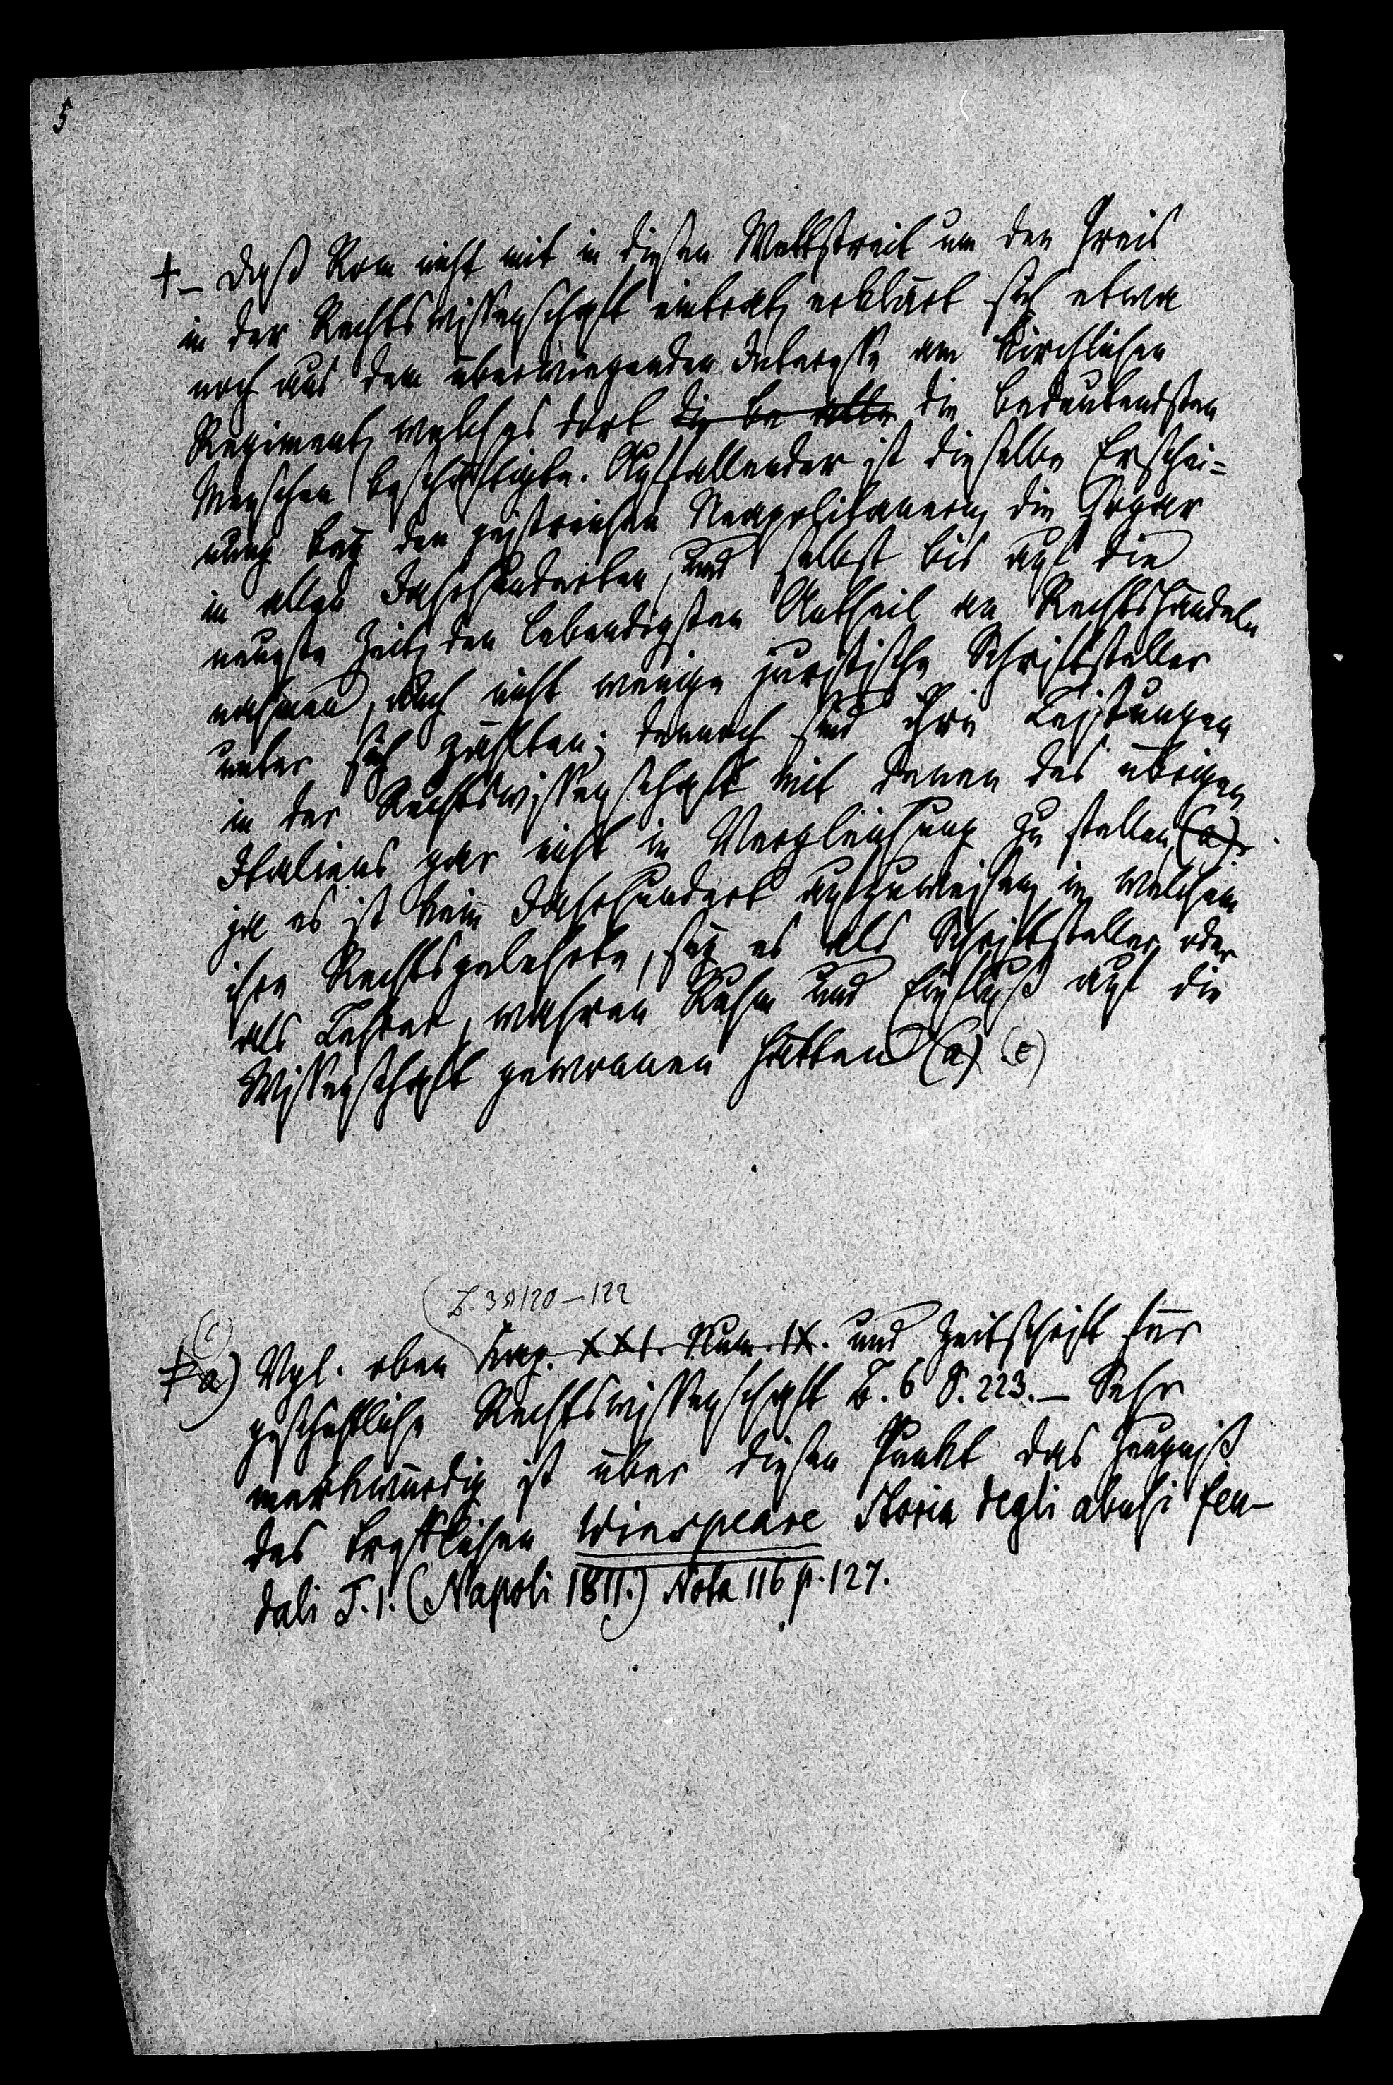 5
+ – Daß Rom nicht mit in diesen Wettstreit um den Preis
in der Rechtswissenschaft eintrat, erklärt sich etwa
noch aus dem überwiegenden Interesse am kirchlichen
Regiment, welches dort die be die bedeutendsten
Menschen beschäftigte. Auffallender ist dieselbe Erschei=
nung bey den geistreichen Neapolitanern, die sogar
in allen Jahrhunderten, und selbst bis auf die
neueste Zeit, den lebendigsten Antheil an Rechtshändeln
nahmen, auch nicht wenige juristische Schriftsteller
unter sich zählten; dennoch sind ihre Leistungen
in der Rechtswissenschaft mit denen des übrigen
Italiens gar nicht in Vergleichung zu stellen (a),
ja es ist kein Jahrhundert aufzuweisen, in welchem
ihre Rechtsgelehrte, sey es als Schriftsteller oder
als Lehrer, wahren Ruhm und Einfluß auf die
Wissenschaft gewonnen hätten (a) (c)
B. 3 S. 120–122
(c)
+ a) Vgl. oben Kap. XXI. Num. IX. und Zeitschrift für
geschichtliche Rechtswissenschaft B. 6 S. 223. – Sehr
merkwürdig ist über diesen Punkt das Zeugniß
des trefflichen Winspeare Storia degli abusi feu-
dali T. 1. (Napoli 1811.) Nota 116 p. 127.